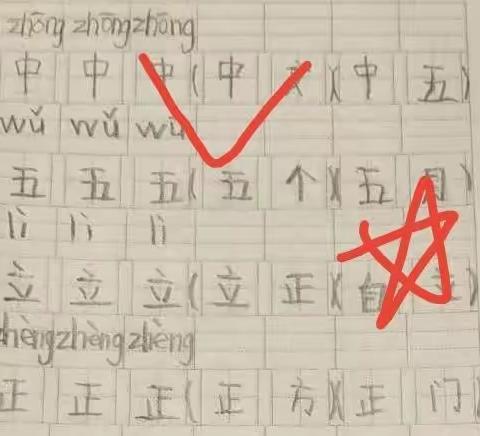 zhōng zhōng zhōng
中 中 中 ( 中 文 ) ( 中 五 )
wǔ wǔ wǔ
五 五 五 ( 五 个 ) ( 五 月 )
lì lì lì
立 立 立 ( 立 正 ) ( 自 立 )
zhèng zhèng zhèng
正 正 正 ( 正 方 ) ( 正 门 )